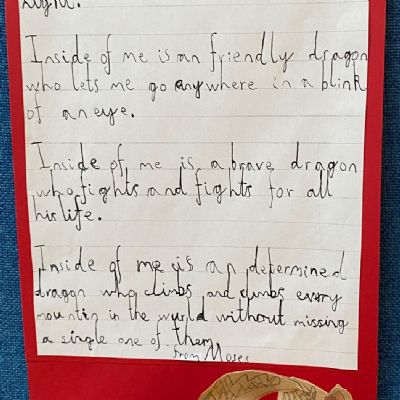 Light.
Inside of me is an friendly dragon
who lets me go anywhere in a blink
of an eye.
Inside of me is a brave dragon
who fights and fights for all
his life.
Inside of me is an determined
dragon who climbs and climbs every
mountin in the world without missing
a single one of them.
From Moses